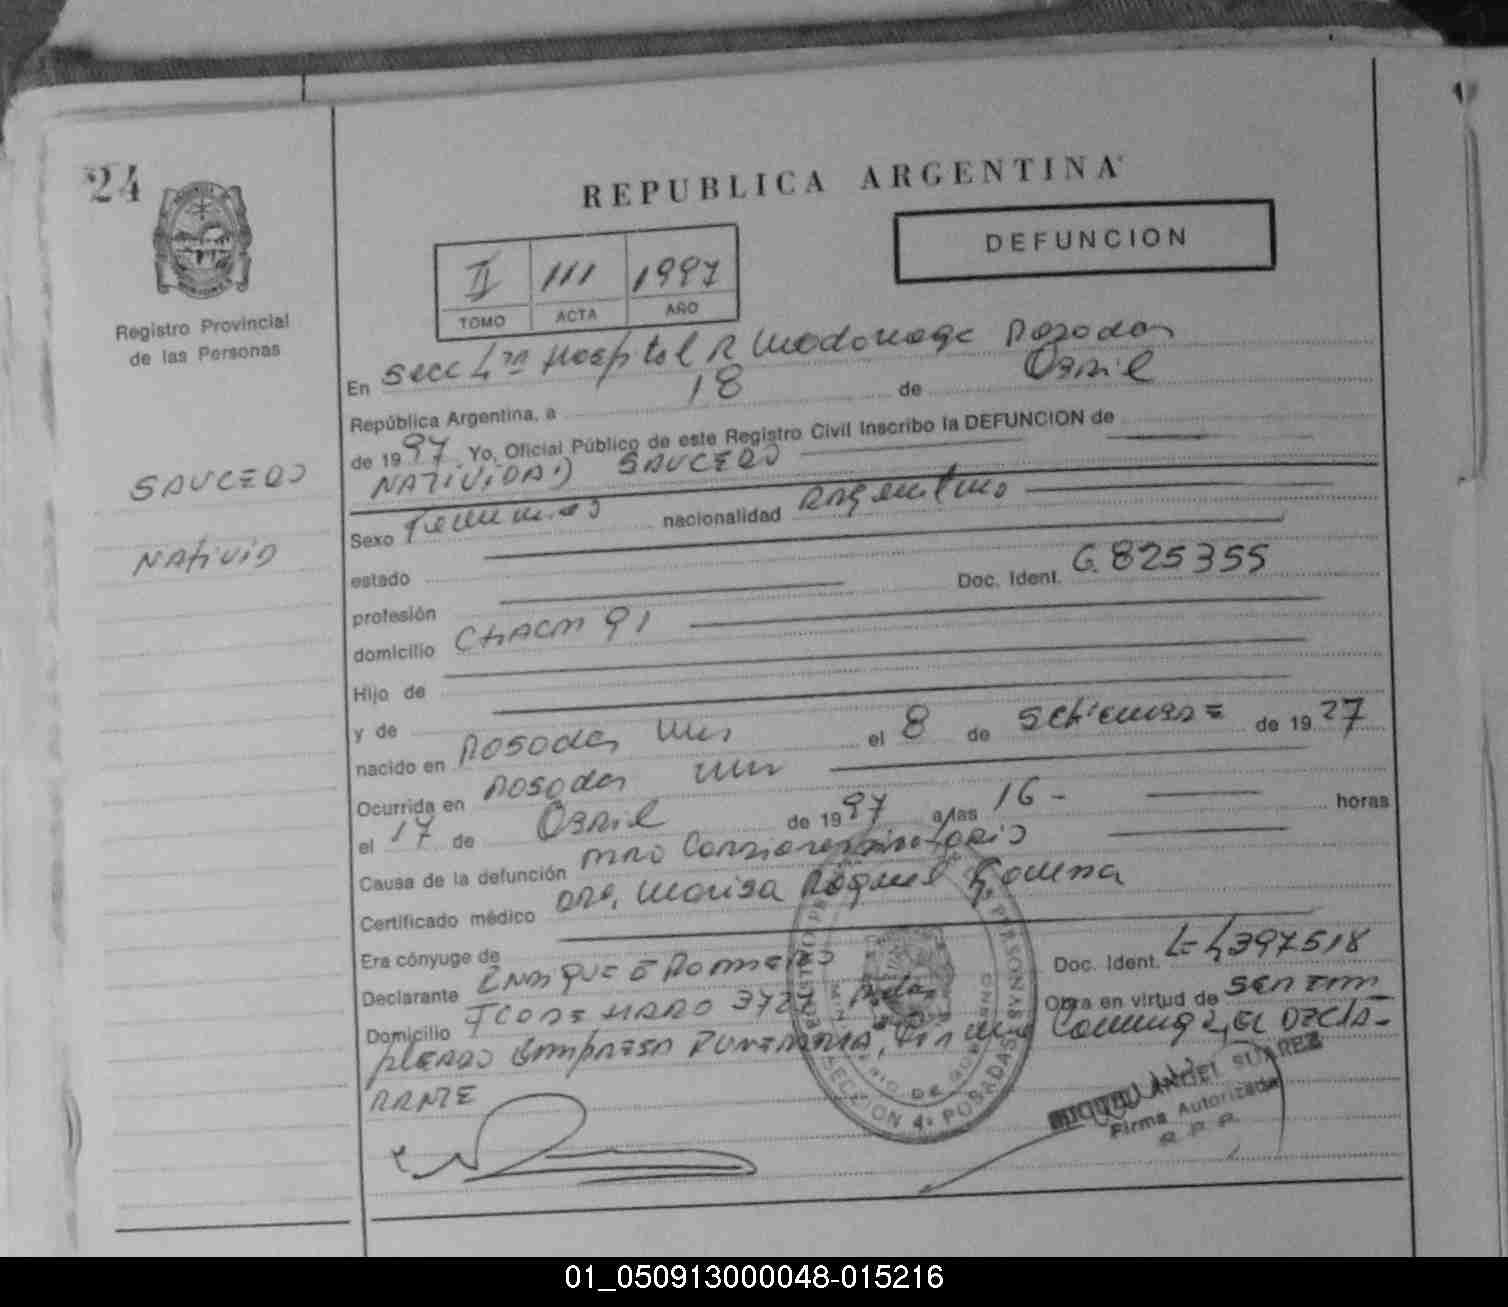 24
REPUBLICA ARGENTINA
DEFUNCION
II 111 1997
TOMO ACTA AÑO
Registro Provincial
de las Personas
En Secc 4ta Hospital R Madariaga Posadas
República Argentina, a 18 de Abril
de 1997 Yo, Oficial Público de este Registro Civil Inscribo la DEFUNCION de
SAUCEDO
NATIVIDAD SAUCEDO
NATIVID
Sexo Femenino nacionalidad Argentina
estado
profesión Doc. Ident. 6.825355
domicilio CHACRA 91
Hijo de
y de
nacido en Posadas Mnes el 8 de Setiembre de 1927
Ocurrida en Posadas Mnes
el 17 de Abril de 1997 a las 16- horas
Causa de la defunción PARO Cardiorespiratorio
Certificado médico DRA. Marisa Raquel
Era cónyuge de
Declarante ENRIQUE Doc. Ident. L-4397518
Domicilio 3727 Pdas Obra en virtud de SER EM-
PLEADO Empresa FUNERARIA, Firma Conmigo, EL DECLA-
RANTE
SECCION 4a POSADAS
MINISTERIO DE GOBIERNO
MIGUEL ANGEL SUAREZ
Firma Autorizada
R. P. P.
01_050913000048-015216